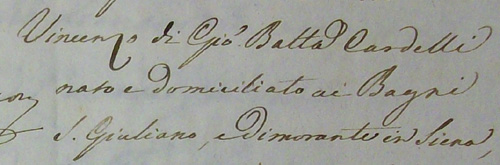 Vincenzo di Gio. Batta Cardelli
nato e domiciliato ai Bagni
S. Giuliano, e dimorante in Siena,